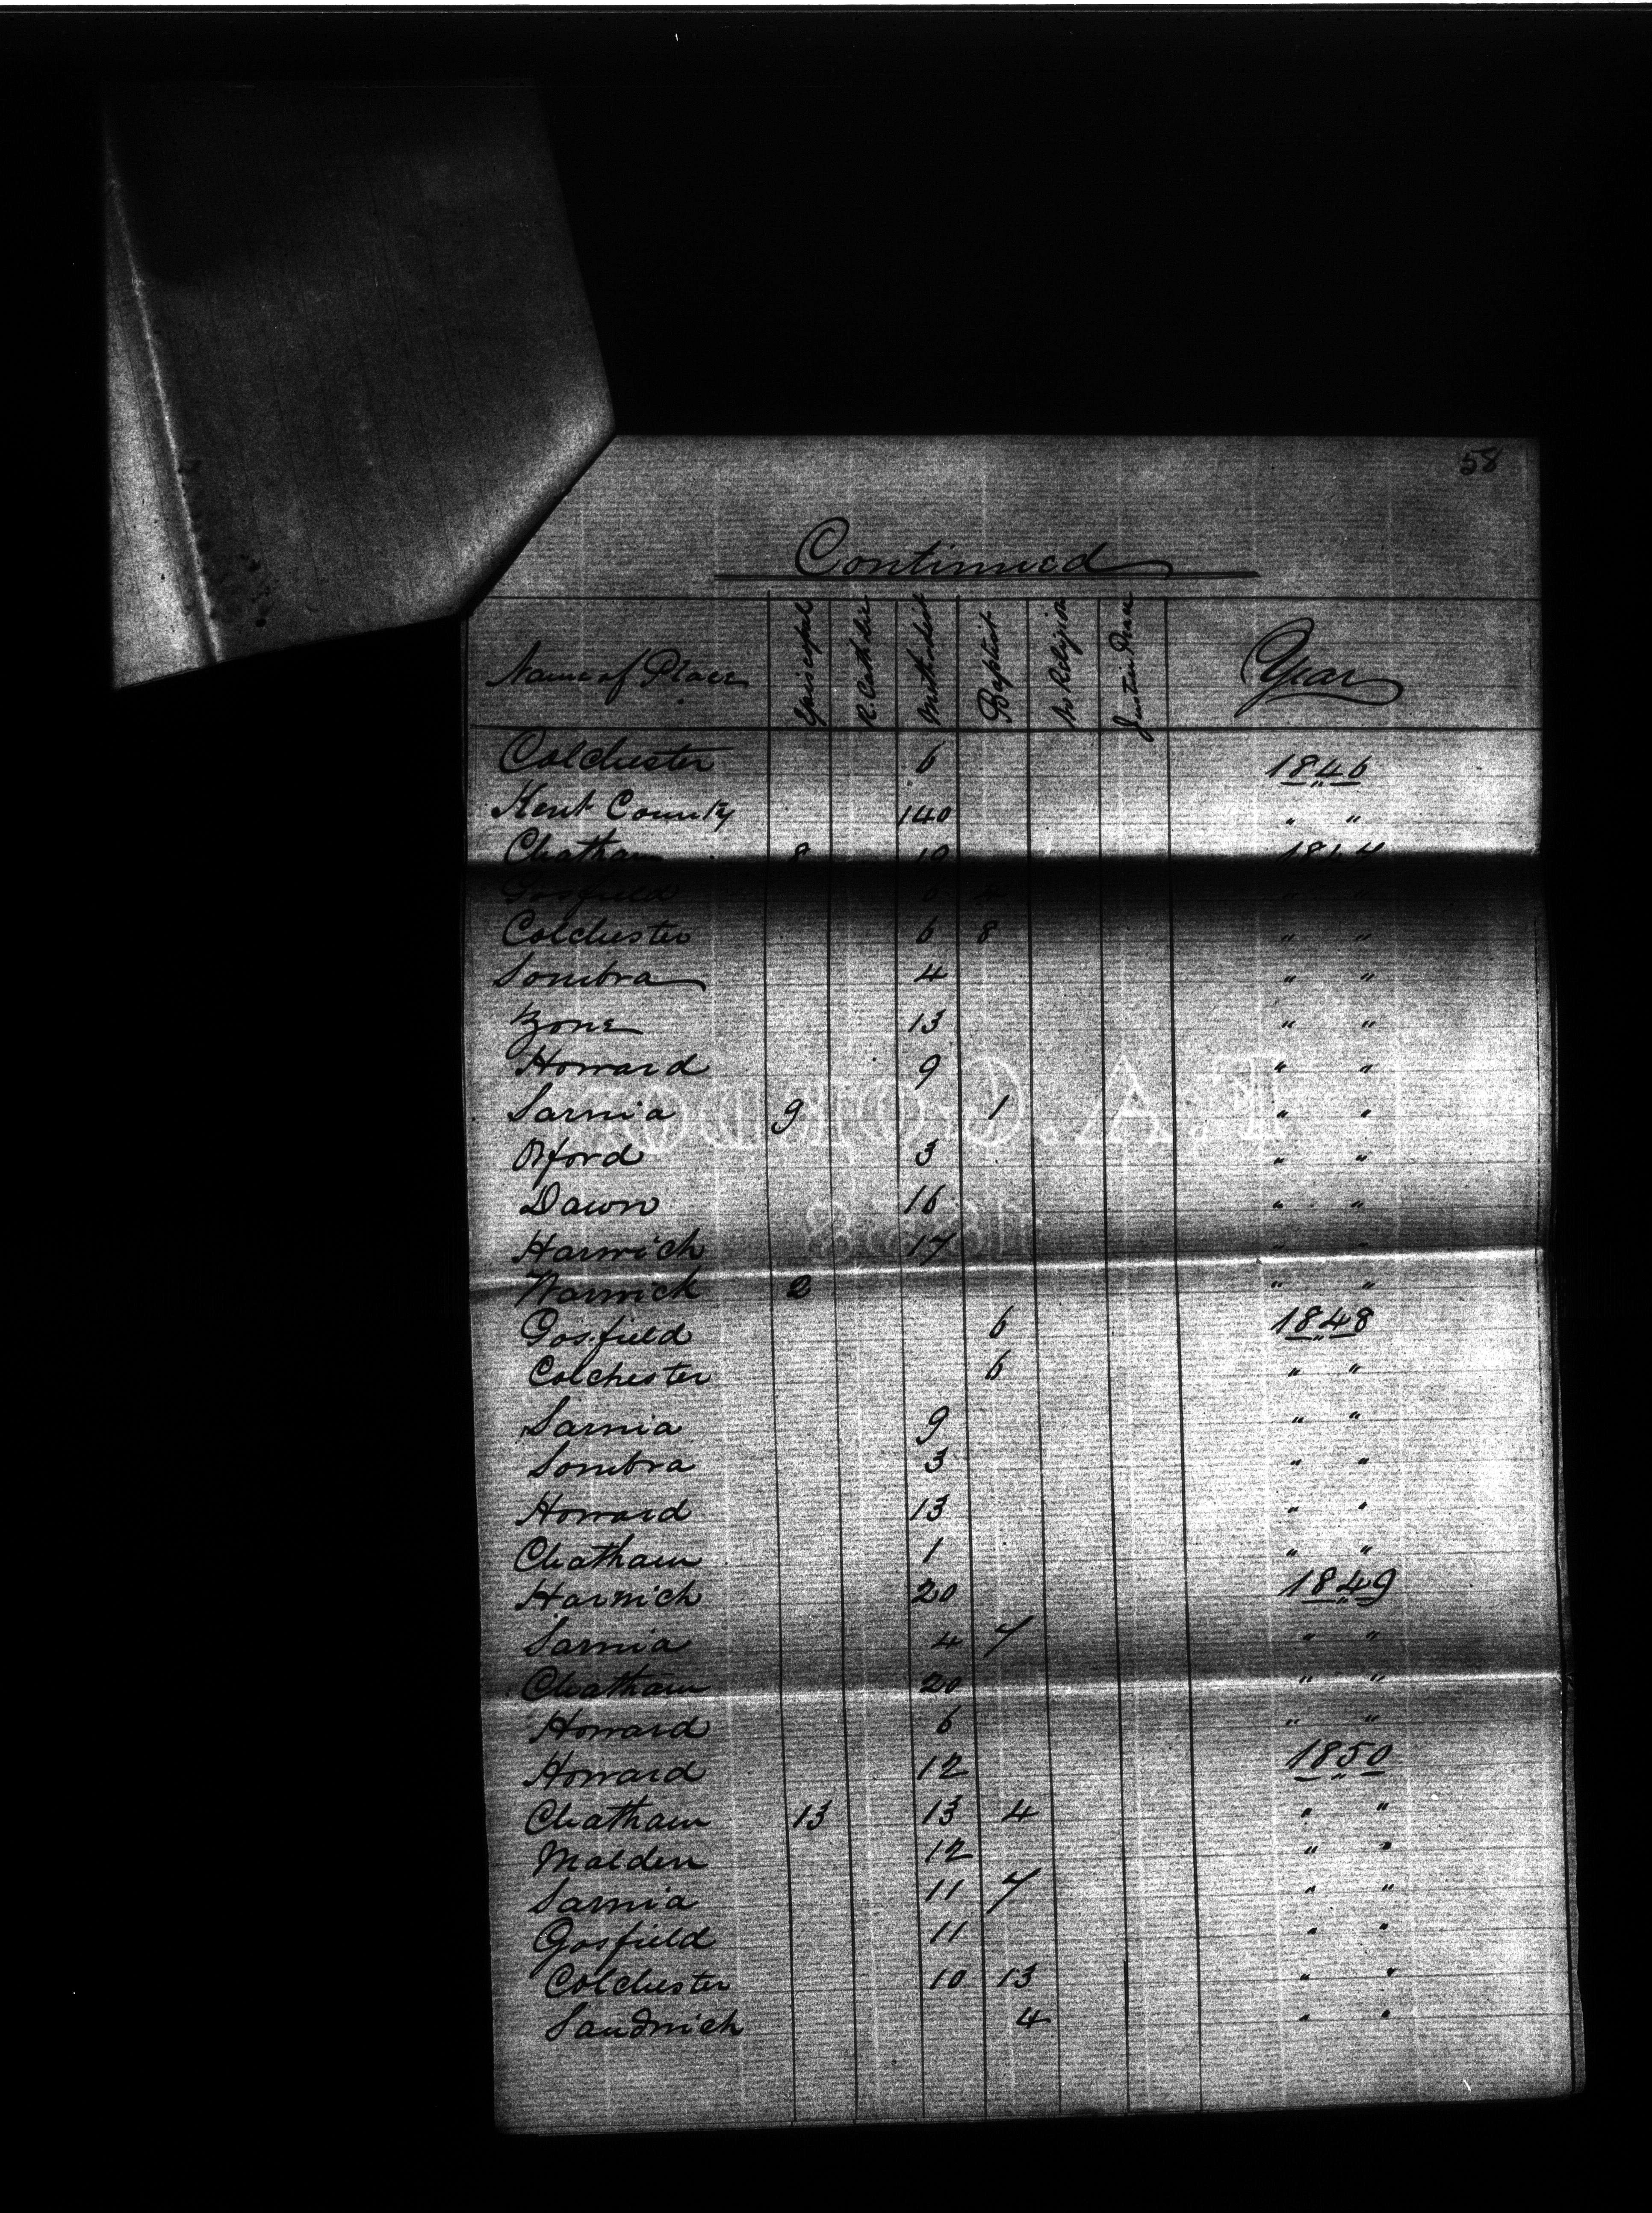 58
Continued
Name of Place Episcopal R. Catholic Methodist Baptist No Religion Year
Colchester 6 1846
Kent County 140 " "
Chatham 8 10 1847
Gosfield 6 4 " "
Colchester 6 8 " "
Sombra 4 " "
Zone 13 " "
Howard 9 " "
Sarnia 9 1 " "
Orford 3 " "
Dawn 16 " "
Harwich 17 " "
Warwick 2 " "
Gosfield 6 1848
Colchester 6 " "
Sarnia 9 " "
Sombra 3 " "
Howard 13 " "
Chatham 1 " "
Harwich 20 1849
Sarnia 4 7 " "
Chatham 20 " "
Howard 6 " "
Howard 12 1850
Chatham 13 13 4 " "
Malden 12 " "
Sarnia 11 7 " "
Gosfield 11 " "
Colchester 10 13 " "
Sandwich 4 " "